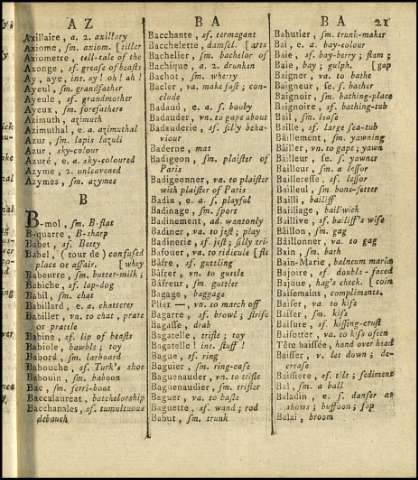 A Z
Axillaire, a. 2. axillary
Axiome, sm. axiom. [tiller
Axiometre, tell-tale of the
Axonge, sf. grease of beasts
Ay, aye, int. ay! oh! ah!
Ayeul, sm. grandfather
Ayeule, sf. grandmother
Ayeux, sm. forefathers
Azimuth, azimuth
Azimuthal, e. a. azimuthal
Azur, sm. lapis lazuli
Azur, sky-colour
Azuré, e. a. sky-coloured
Azyme, 2. unleavened
Azymes, sm. azymes
B
B-mol, sm. B-flat
B-quarre, B-sharp
Babet, sf. Betty
Babel, (tour de) confused
place or affair. [whey
Babeurre, sm. butter-milk;
Babiche, sf. lap-dog
Babil, sm. chat
Babillard, e. a. chatterer
Babiller, va. to chat, prate
or prattle
Babine, sf. lip of beasts
Babiole, bawble; toy
Babord, sm. larboard
Babouche, sf. Turk's shoe
Babouin, sm. baboon
Bac, sm. ferri-boat
Baccalaureat, batchelorship
Bacchanales, sf. tumultuous
debauch
B A
Bacchante, sf. termagant
Bacchelette, damsel. [arts
Bachelier, sm. bachelor of
Bachique, a. 2. drunken
Bachot, sm. wherry
Bacler, va. make fast; con-
clude
Badaud, e. a. s. booby
Badauder, vn. to gape about
Badauderie, sf. silly beha-
viour
Baderne, mat
Badigeon, sm. plaister of
Paris
Badigeonner, va. to plaister
with plaister of Paris
Badin, e. a. s. playful
Badinage, sm. sport
Badinement, ad. wantonly
Badiner, va. to jest; play
Badinerie, sf. jest; silly tri-
Bafouer, va. to ridicule [fle
Bâfre, sf. guttling
Bâfrer, va. to guttle
Bâfreur, sm. guttler
Bagage, baggage
Plier —, va. to march off
Bagarre, sf. browl; strife
Bagasse, drab
Bagatelle, trifle; toy
Bagatelle! int. stuff!
Bague, sf. ring
Baguier, sm. ring-case
Baguenauder, vn. to trifle
Baguenaudier, sm. trifler
Baguer, va. to baste
Baguette, sf. wand; rod
Bahut, sm. trunk
B A 21
Bahutier, sm. trunk-maker
Bai, e. a. bay-colour
Baie, sf. bay-berry; flam;
Baie, bay; gulph. [gap
Baigner, va. to bathe
Baigneur, se. s. bather
Baignoir, sm. bathing-place
Baignoire, sf. bathing-tub
Bail, sm. lease
Baille, sf. large sea-tub
Bâillement, sm. yawning
Bâiller, vn. to gape; yawn
Bâilleur, se. s. yawner
Bailleur, sm. a lessor
Bailleresse, sf. lessor
Bailleul, sm. bone-setter
Bailli, bailiff
Bailliage, bailiwick
Baillive, sf. bailiff's wife
Bâillon, sm. gag
Bâillonner, va. to gag
Bain, sm. bath
Bain-Marie, balneum mariæ
Bajoire, sf. double-faced
Bajoue, hag's cheek. [coin
Baisemains, compliments
Baiser, va. to kiss
Baiser, sm. kiss
Baisure, sf. kissing-crust
Baisotter, va. to kiss often
Tête baissée, hand over head
Baisser, v. let down; de-
crease
Baissiere, sf. tilt; sediment
Bal, sm. a ball
Baladin, e. s. danser at
shows; buffoon; fop
Balai, broom